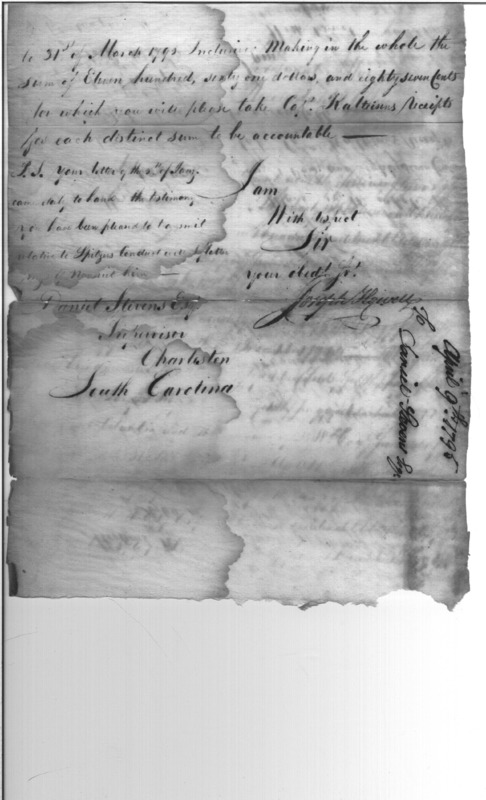 to 31st of March 1795 Inclusive: Making in the whole the
Sum of Eleven hundred, sixty one dollars, and eighty seven Cents
for which you will please take Capt. Kalteisens receipts
for each distinct sum to be accountable —
P.S. Your letter of the of Jany.
came duly to hand the testimony
you have been pleased to transmit
relative to Spitzers Conduct
him —
I am
With Respect
Sir
your obedt. St.
Joseph Howell
Daniel Stevens Esqr.
Supervisor
Charleston
South Carolina
April 9th 1795
To Daniel Stevens Esqr.